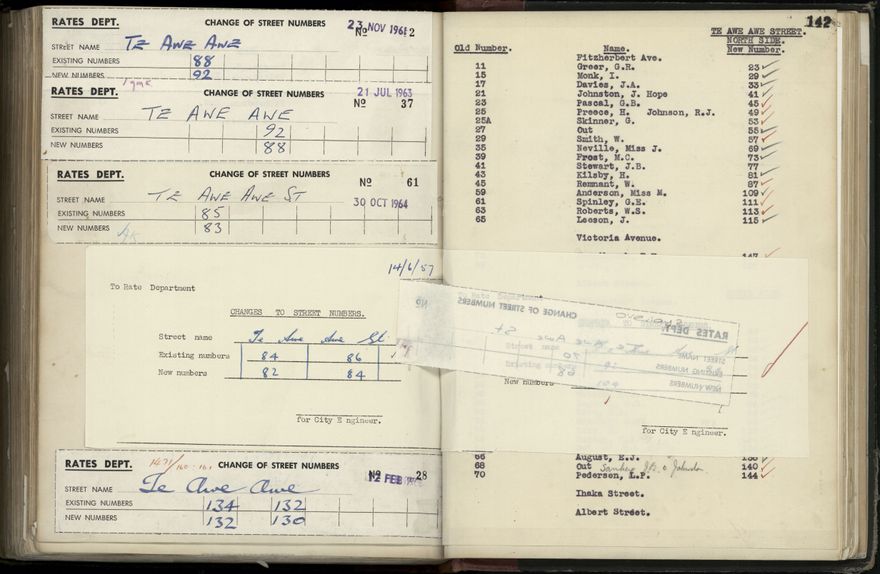 RATES DEPT. CHANGE OF STREET NUMBERS 23 NOV 1961
No 2
STREET NAME TE AWE AWE
EXISTING NUMBERS 88
NEW NUMBERS 92
RATES DEPT. CHANGE OF STREET NUMBERS 21 JUL 1963
No 37
STREET NAME TE AWE AWE
EXISTING NUMBERS 92
NEW NUMBERS 88
RATES DEPT. CHANGE OF STREET NUMBERS
No 61
STREET NAME TE AWE AWE ST 30 OCT 1964
EXISTING NUMBERS 85
NEW NUMBERS 83
14/6/57
To Rate Department
CHANGES TO STREET NUMBERS.
Street name Te Awe Awe St.
Existing numbers 84 86
New numbers 82 84
for City Engineer.
RATES DEPT. CHANGE OF STREET NUMBERS No 28
12 FEB
STREET NAME Te Awe Awe
EXISTING NUMBERS 134 132
NEW NUMBERS 132 130
142
TE AWE AWE STREET.
NORTH SIDE.
Old Number. Name. New Number.
Fitzherbert Ave.
11 Greer, G.R. 23
15 Monk, I. 29
17 Davies, J.A. 33
21 Johnston, J. Hope 41
23 Pascal, G.B. 45
25 Preece, H. Johnson, R.J. 49
25A Skinner, G. 53
27 Out 55
29 Smith, W. 57
35 Neville, Miss J. 69
39 Frost, M.C. 73
41 Stewart, J.B. 77
43 Kilsby, H. 81
45 Remnant, W. 87
59 Anderson, Miss M. 109
61 Spinley, G.E. 111
63 Roberts, W.S. 113
65 Leeson, J. 115
Victoria Avenue.
147
To Rate Department
RATES DEPT. CHANGE OF STREET NUMBERS
STREET NAME
EXISTING NUMBERS
NEW NUMBERS
Street name
New numbers
for City Engineer.
66 August, E.J. 136
68 Out 140
70 Pedersen, L.P. 144
Ihaka Street.
Albert Street.